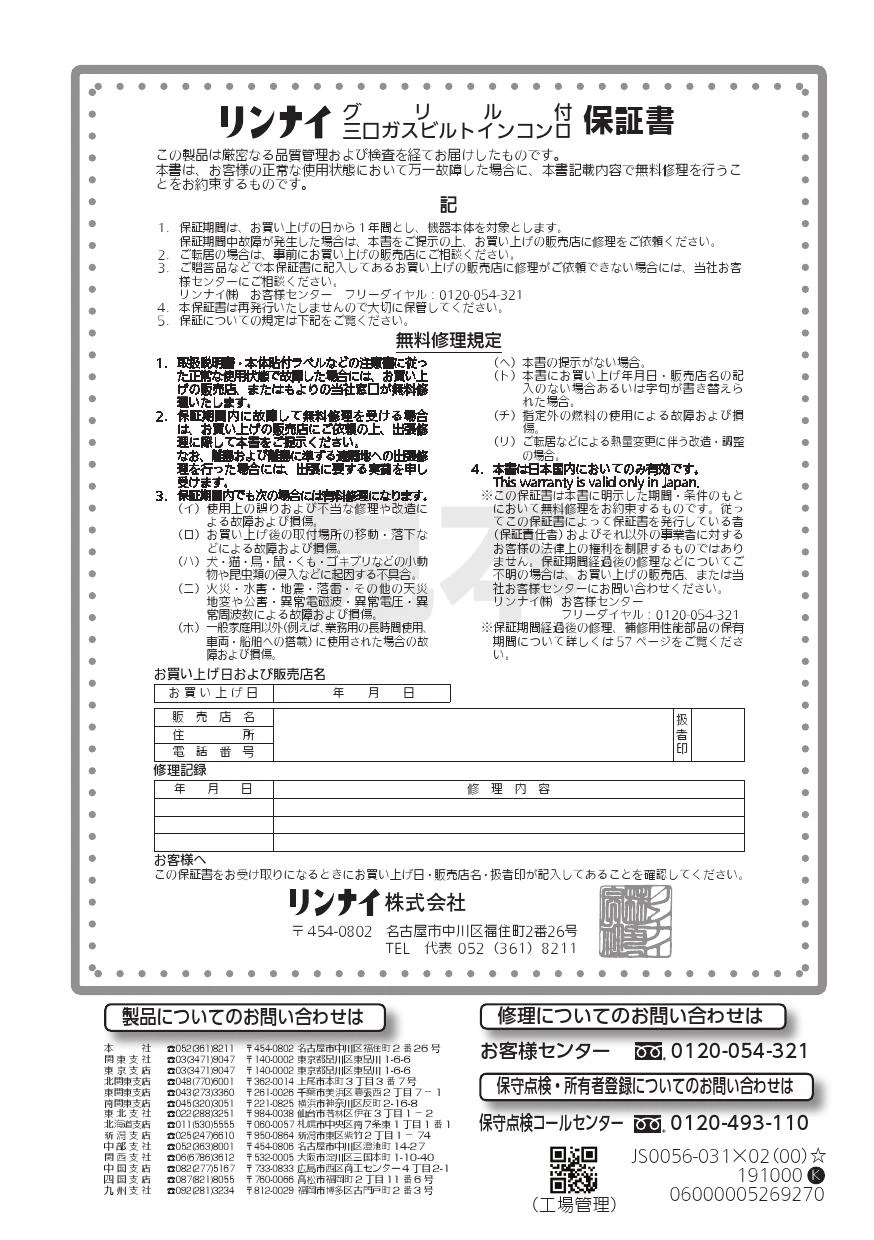 リンナイ グリル付 三口ガスビルトインコンロ 保証書
この製品は厳密なる品質管理および検査を経てお届けしたものです。
本書は、お客様の正常な使用状態において万一故障した場合に、本書記載内容で無料修理を行うこ
とをお約束するものです。
記
1. 保証期間は、お買い上げの日から1年間とし、機器本体を対象とします。
保証期間中故障が発生した場合は、本書をご提示の上、お買い上げの販売店に修理をご依頼ください。
2. ご転居の場合は、事前にお買い上げの販売店にご相談ください。
3. ご贈答品などで本保証書に記入してあるお買い上げの販売店に修理がご依頼できない場合には、当社お客
様センターにご相談ください。
リンナイ㈱ お客様センター フリーダイヤル：0120-054-321
4. 本保証書は再発行いたしませんので大切に保管してください。
5. 保証についての規定は下記をご覧ください。
無料修理規定
1. 取扱説明書・本体貼付ラベルなどの注意書に従っ
た正常な使用状態で故障した場合には、お買い上
げの販売店、またはもよりの当社窓口が無料修
理いたします。
2. 保証期間内に故障して無料修理を受ける場合
は、お買い上げの販売店にご依頼の上、出張修
理に際して本書をご提示ください。
なお、離島および離島に準ずる遠隔地への出張修
理を行った場合には、出張に要する実費を申し
受けます。
3. 保証期間内でも次の場合には有料修理になります。
（イ）使用上の誤りおよび不当な修理や改造に
よる故障および損傷。
（ロ）お買い上げ後の取付場所の移動・落下な
どによる故障および損傷。
（ハ）犬・猫・鳥・鼠・くも・ゴキブリなどの小動
物や昆虫類の侵入などに起因する不具合。
（ニ）火災・水害・地震・落雷・その他の天災
地変や公害・異常電磁波・異常電圧・異
常周波数による故障および損傷。
（ホ）一般家庭用以外（例えば、業務用の長時間使用、
車両・船舶への搭載）に使用された場合の故
障および損傷。
（ヘ）本書の提示がない場合。
（ト）本書にお買い上げ年月日・販売店名の記
入のない場合あるいは字句が書き替えら
れた場合。
（チ）指定外の燃料の使用による故障および損
傷。
（リ）ご転居などによる熱量変更に伴う改造・調整
の場合。
4. 本書は日本国内においてのみ有効です。
This warranty is valid only in Japan.
※この保証書は本書に明示した期間・条件のもと
において無料修理をお約束するものです。従っ
てこの保証書によって保証書を発行している者
（保証責任者）およびそれ以外の事業者に対する
お客様の法律上の権利を制限するものではあり
ません。保証期間経過後の修理などについてご
不明の場合は、お買い上げの販売店、または当
社お客様センターにお問い合わせください。
リンナイ㈱ お客様センター
フリーダイヤル：0120-054-321
※保証期間経過後の修理、補修用性能部品の保有
期間について詳しくは57ページをご覧くださ
い。
見本
お買い上げ日および販売店名
お買い上げ日 年 月 日
販売店名
住所
電話番号
扱者印
修理記録
年 月 日 修理内容
お客様へ
この保証書をお受け取りになるときにお買い上げ日・販売店名・扱者印が記入してあることを確認してください。
リンナイ株式会社
〒454-0802 名古屋市中川区福住町2番26号
TEL 代表 052（361）8211
製品についてのお問い合わせは
本社 ☎052(361)8211 〒454-0802 名古屋市中川区福住町2番26号
関東支社 ☎03(3471)9047 〒140-0002 東京都品川区東品川1-6-6
東京支店 ☎03(3471)9047 〒140-0002 東京都品川区東品川1-6-6
北関東支店 ☎048(770)6001 〒362-0014 上尾市本町3丁目3番7号
東関東支店 ☎043(273)3360 〒261-0026 千葉市美浜区幕張西2丁目7－1
南関東支店 ☎045(320)3051 〒221-0825 横浜市神奈川区反町2-16-8
東北支社 ☎022(288)3251 〒984-0038 仙台市若林区伊在3丁目1－2
北海道支店 ☎011(530)5555 〒060-0057 札幌市中央区南7条東1丁目1番1
新潟支店 ☎025(247)6610 〒950-0864 新潟市東区紫竹2丁目1－74
中部支社 ☎052(363)8001 〒454-0806 名古屋市中川区澄池町14-27
関西支社 ☎06(6786)3612 〒532-0005 大阪市淀川区三国本町1-10-40
中国支店 ☎082(277)5167 〒733-0833 広島市西区商工センター4丁目2-1
四国支店 ☎087(821)8055 〒760-0066 高松市福岡町2丁目11番6号
九州支社 ☎092(281)3234 〒812-0029 福岡市博多区古門戸町2番3号
修理についてのお問い合わせは
お客様センター 0120-054-321
保守点検・所有者登録についてのお問い合わせは
保守点検コールセンター 0120-493-110
（工場管理）
JS0056-031×02(00)☆
191000 K
06000005269270